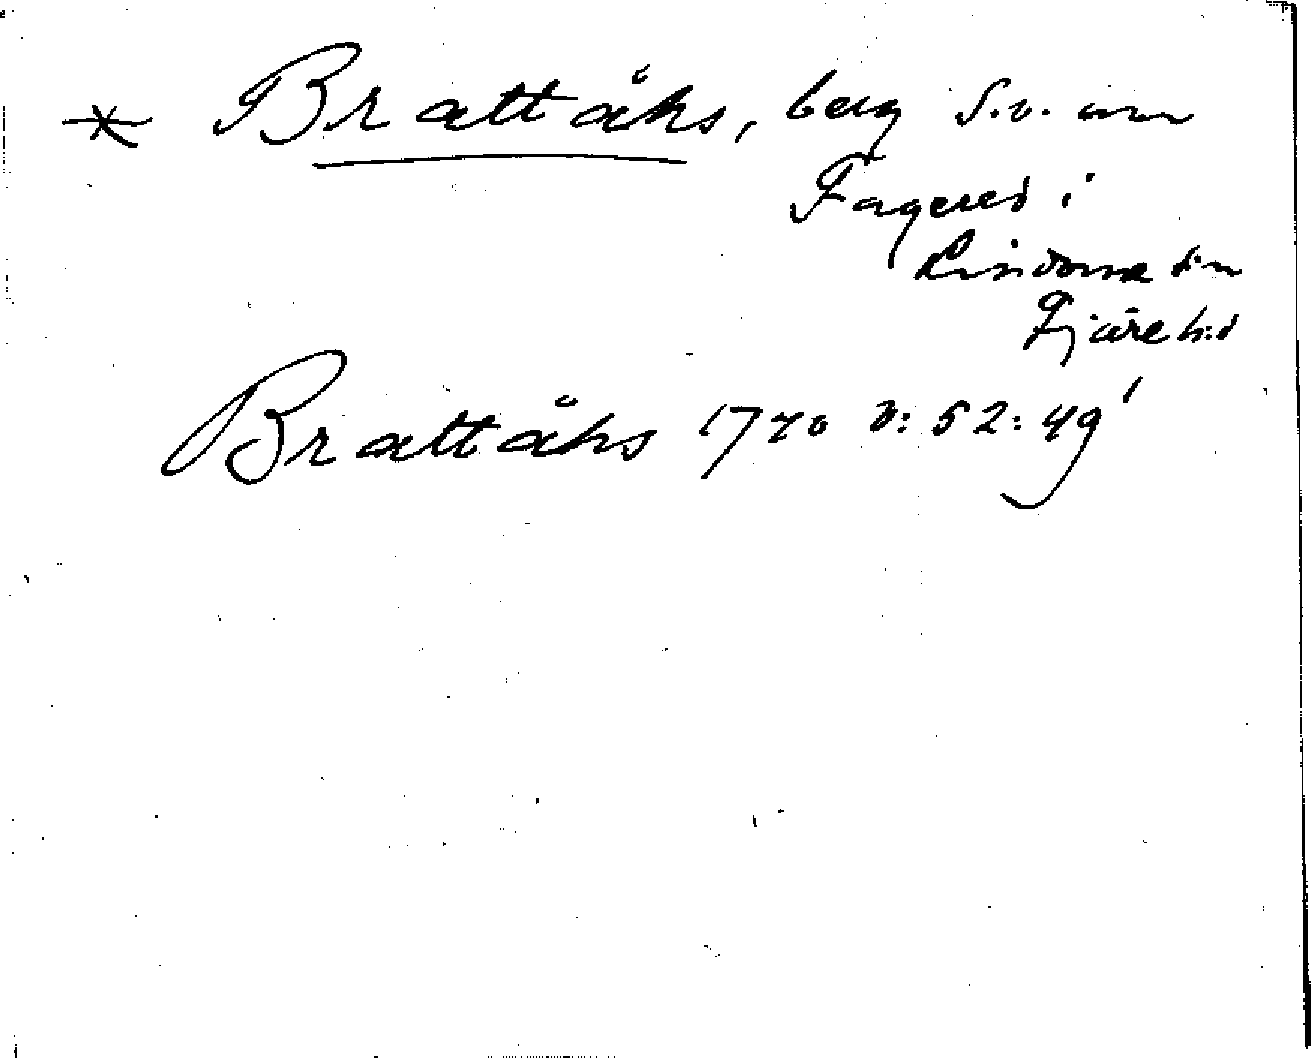 * Brattåhs, berg S.v. om
Fagered i
Lindome sn
Fjäre hd
Brattåhs 1770 N: 52: 49'